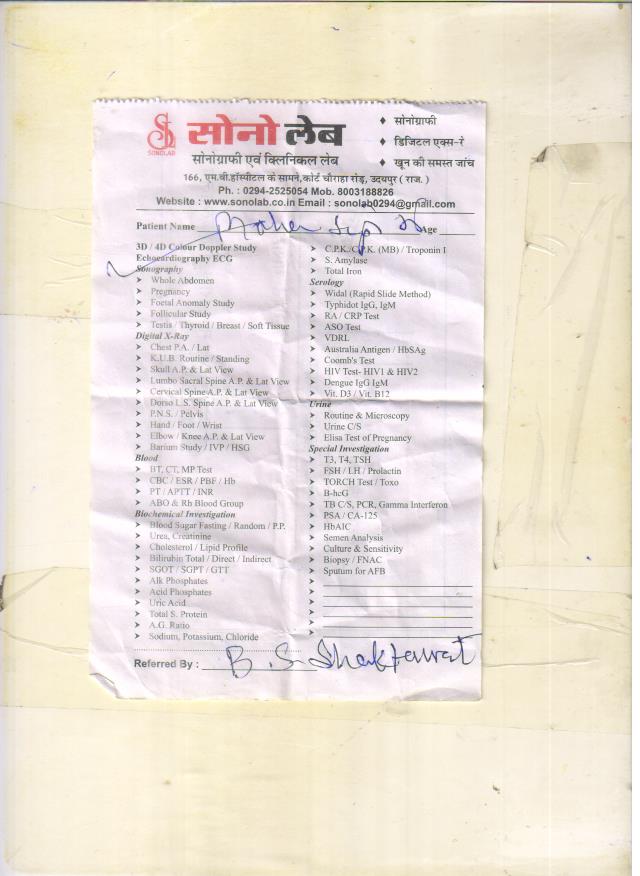 SONOLAB
सोनो लेब
♦ सोनोग्राफी
♦ डिजिटल एक्स-रे
♦ खून की समस्त जांच
सोनोग्राफी एवं क्लिनिकल लेब
166, एम.बी.हॉस्पीटल के सामने,कोर्ट चौराहा रोड़, उदयपुर ( राज. )
Ph. : 0294-2525054 Mob. 8003188826
Website : www.sonolab.co.in Email : sonolab0294@gmail.com
Patient Name Age
3D / 4D Colour Doppler Study
Echocardiography ECG
Sonography
➤ Whole Abdomen
➤ Pregnancy
➤ Foetal Anomaly Study
➤ Follicular Study
➤ Testis / Thyroid / Breast / Soft Tissue
Digital X-Ray
➤ Chest P.A. / Lat
➤ K.U.B. Routine / Standing
➤ Skull A.P. & Lat View
➤ Lumbo Sacral Spine A.P. & Lat View
➤ Cervical Spine A.P. & Lat View
➤ Dorso L.S. Spine A.P. & Lat View
➤ P.N.S. / Pelvis
➤ Hand / Foot / Wrist
➤ Elbow / Knee A.P. & Lat View
➤ Barium Study / IVP / HSG
Blood
➤ BT, CT, MP Test
➤ CBC / ESR / PBF / Hb
➤ PT / APTT / INR
➤ ABO & Rh Blood Group
Biochemical Investigation
➤ Blood Sugar Fasting / Random / P.P.
➤ Urea, Creatinine
➤ Cholesterol / Lipid Profile
➤ Bilirubin Total / Direct / Indirect
➤ SGOT / SGPT / GTT
➤ Alk Phosphates
➤ Acid Phosphates
➤ Uric Acid
➤ Total S. Protein
➤ A.G. Ratio
➤ Sodium, Potassium, Chloride
➤ C.P.K./C.P.K. (MB) / Troponin I
➤ S. Amylase
➤ Total Iron
Serology
➤ Widal (Rapid Slide Method)
➤ Typhidot IgG, IgM
➤ RA / CRP Test
➤ ASO Test
➤ VDRL
➤ Australia Antigen / HbSAg
➤ Coomb's Test
➤ HIV Test- HIV1 & HIV2
➤ Dengue IgG IgM
➤ Vit. D3 / Vit. B12
Urine
➤ Routine & Microscopy
➤ Urine C/S
➤ Elisa Test of Pregnancy
Special Investigation
➤ T3, T4, TSH
➤ FSH / LH / Prolactin
➤ TORCH Test / Toxo
➤ B-hcG
➤ TB C/S, PCR, Gamma Interferon
➤ PSA / CA-125
➤ HbAIC
➤ Semen Analysis
➤ Culture & Sensitivity
➤ Biopsy / FNAC
➤ Sputum for AFB
Referred By : B. S. Shaktawat